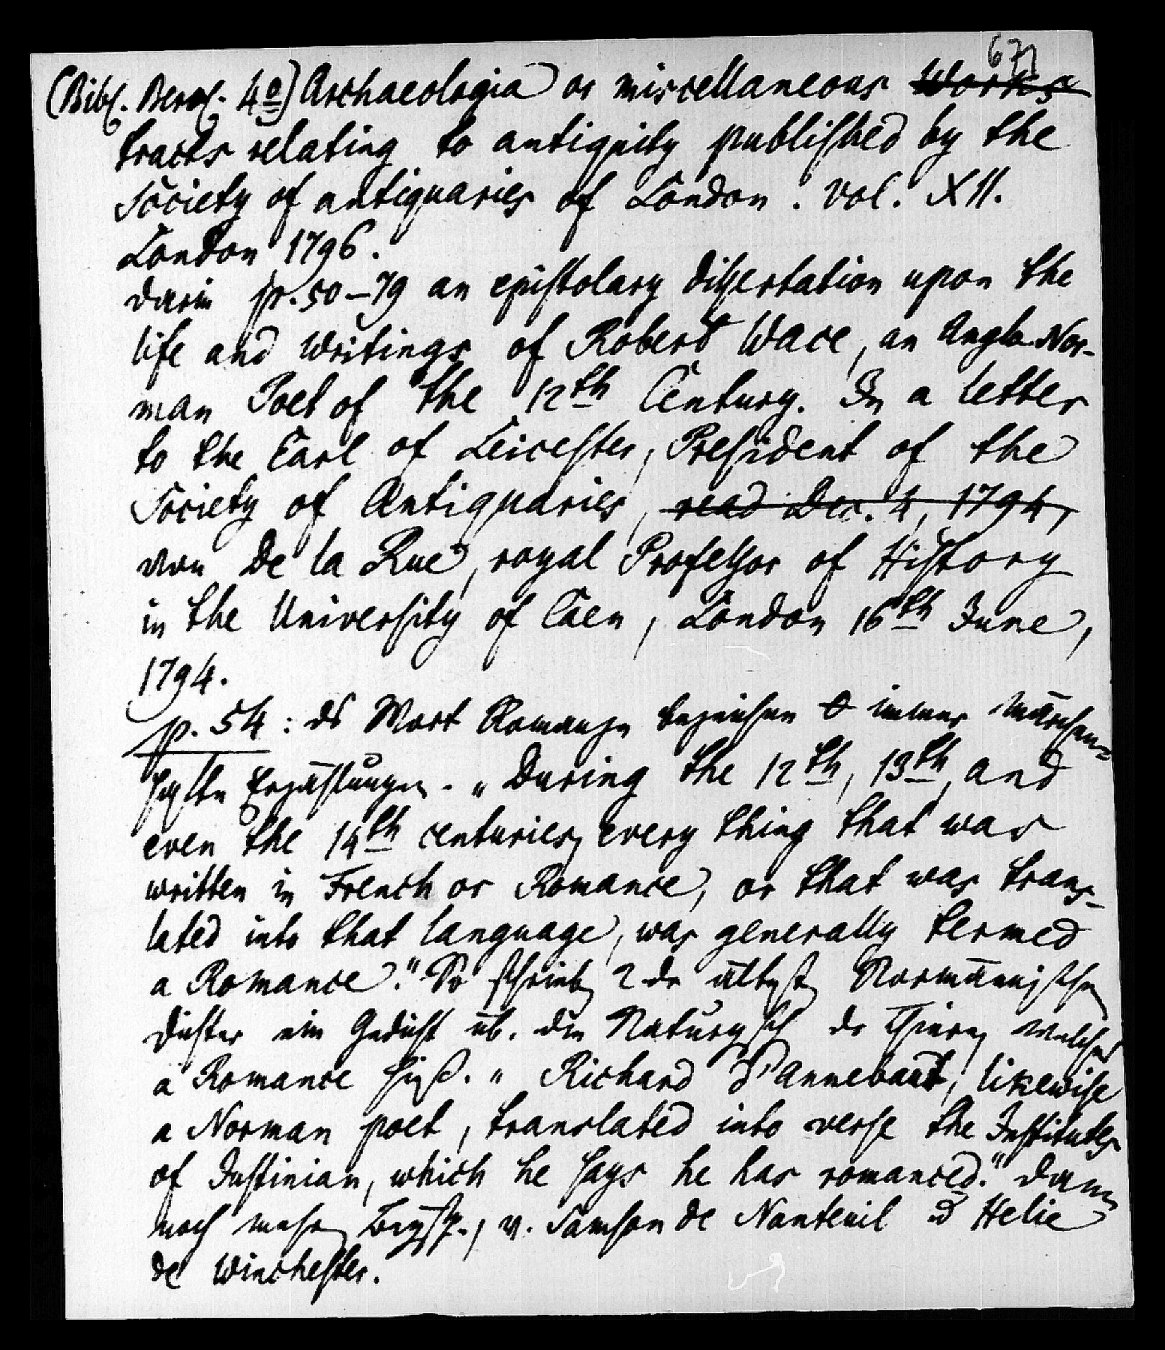 677
(Bibl. Berol. 4º) Archaeologia or miscellaneous Works
tracts relating to antiquity published by the
Society of antiquaries of London. vol. XII.
London 1796.
darin p. 50–79 an epistolary dissertation upon the
life and writings of Robert Wace, an Anglo-Nor-
man Poet of the 12th Century. In a letter
to the Earl of Leicester, President of the
Society of Antiquaries, read Dec. 4, 1794,
von De la Rue, royal Professor of History
in the University of Caen, London 16th June,
1794.
p. 54: ds Wort Romanze bezeichne 0 immer märchen-
hafte Erzählungen. "During the 12th, 13th, and
even the 14th centuries, every thing that was
written in French or Romance, or that was trans-
lated into that language, was generally termed
a Romance." So schrieb 2 dr ältest Normännischen
Dichter ein Gedicht üb. die Naturgsch dr Thiere, welches
a Romance hieß. "Richard d'Annebaut, likewise
a Norman poet, translated into verse the Institutes
of Justinian, which he says he has romanced." Dann
noch mehr Beysp., v. Samson de Nanteuil u Helie
de Winchester.